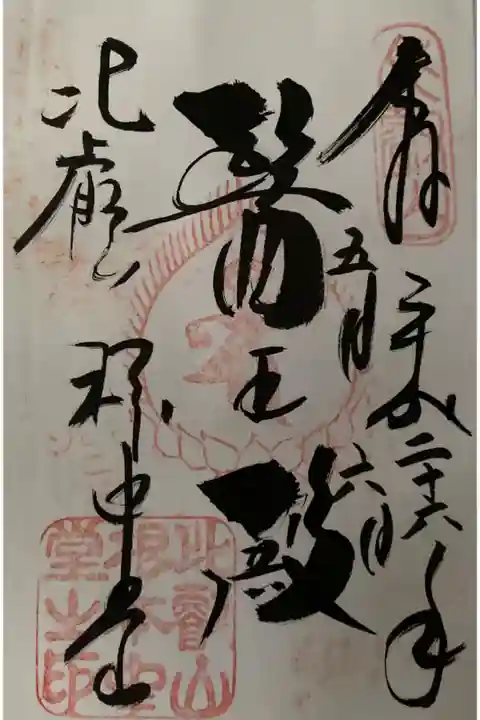 奉拝 平成二十六年
五月六日
醫王殿
比叡山 根本中堂
比叡山
根本中
堂之印